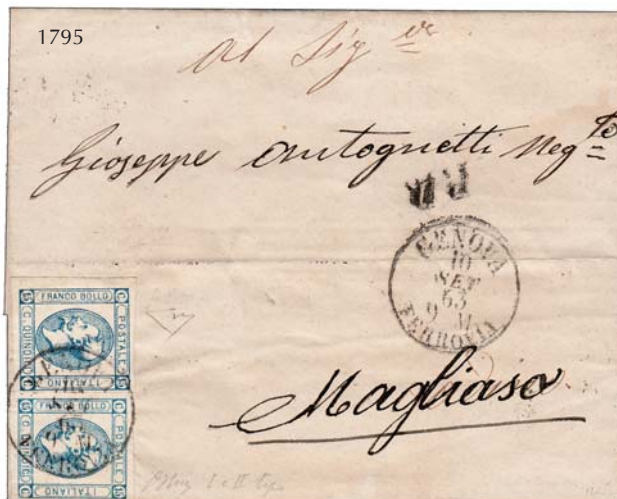 1795
Al Sig.re
Gioseppe Antognetti Neg.te
P.D.
GENOVA
10
SET
63
9 M
FERROVIA
FRANCO BOLLO
C. QUINDICI
POSTALE
ITALIANO
15
C
FRANCO BOLLO
C. QUINDICI
POSTALE
ITALIANO
15
C
Magliaso